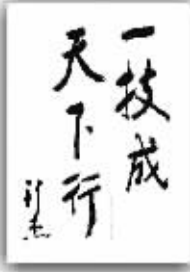 一技成
天下行